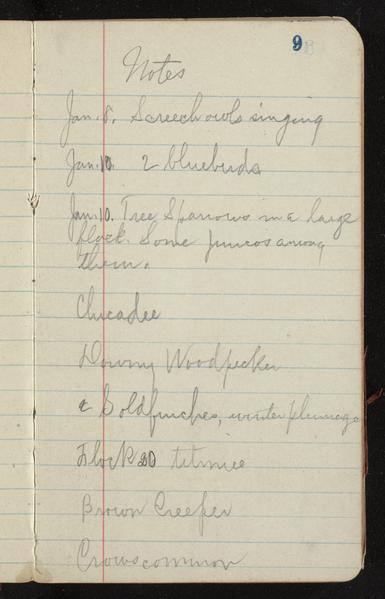 9
Notes
Jan. 8. Screech owls singing
Jan. 10. 2 bluebirds
Jan. 10. Tree Sparrows in a large
flock. Some juncos among
them.
Chicadee
Downy Woodpecker
Goldfinches, winter plumage
Flock 20 titmice
Brown Creeper
Crows common